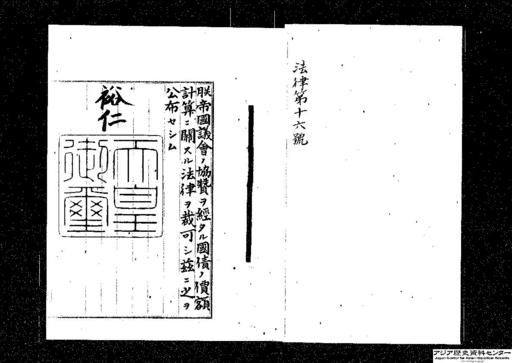 法律第十六號
朕帝國議會ノ協贊ヲ經タル國債ノ價額
計算ニ關スル法律ヲ裁可シ茲ニ之ヲ
公布セシム
裕仁
天皇
御璽
アジア歴史資料センター
Japan Center for Asian Historical Records